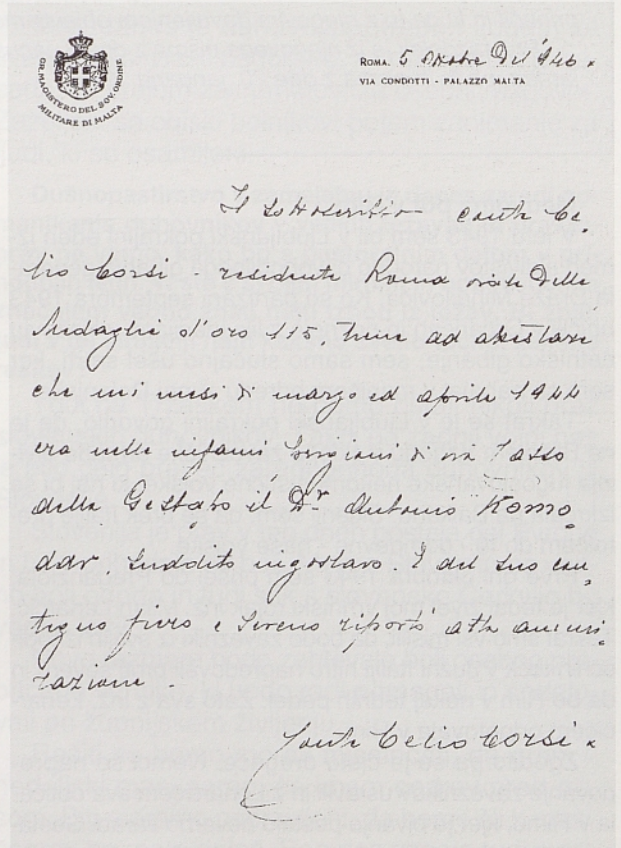 GR. MAGISTERO DEL SOV. ORDINE
MILITARE DI MALTA
ROMA. 5 ottobre del 1946.
VIA CONDOTTI - PALAZZO MALTA
Il sottoscritto conte Ce-
lio Corsi - residente Roma viale delle
Medaglie d'oro 115, tiene ad attestare
che nei mesi di marzo ed aprile 1944
era nelle infami prigioni di via Tasso
della Gestapo il Dr. Antonio Komo-
dar, suddito iugoslavo. E del suo con-
tegno fiero e sereno riportò alta ammi-
razione.
Conte Celio Corsi.